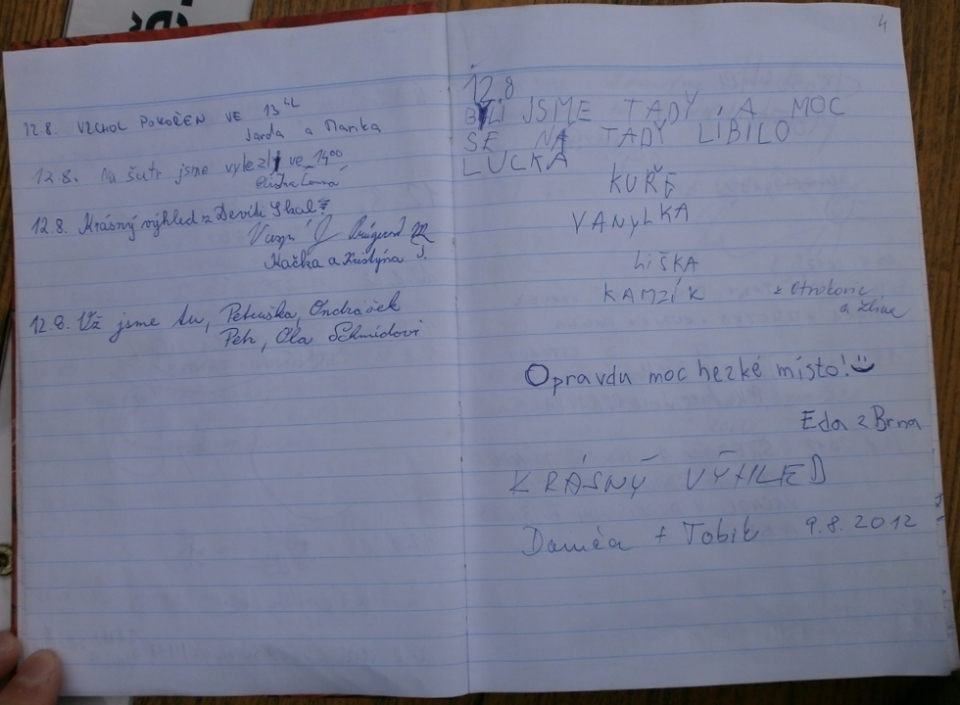 12.8. VRCHOL POKOŘEN VE 13
Jarda a Marika
12.8. Na šutr jsme vylezli ve 1400
12.8. Krásný výhled z Devíti Skal
Kačka a Kristýna
12.8. Už jsme tu, Petruška, Ondráček
Petr, Ola Schmidovi
4
12.8
BYLI JSME TADY, A MOC
SE NA TADY LÍBILO
LUCKA
KUŘE
VANYLKA
LIŠKA
KAMZÍK z Otrokovic
a Zlína
Opravdu moc hezké místo!
Eda z Brna
KRÁSNÝ VÝHLED
Danča + Tobik 9.8.2012